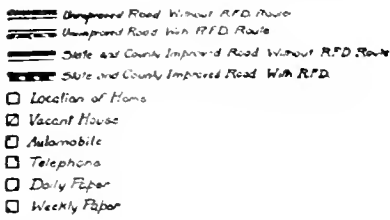 Unimproved Road Without R.F.D. Route
Unimproved Road With R.F.D. Route
State and County Improved Road Without R.F.D. Route
State and County Improved Road With R.F.D.
Location of Home
Vacant House
Automobile
Telephone
Daily Paper
Weekly Paper